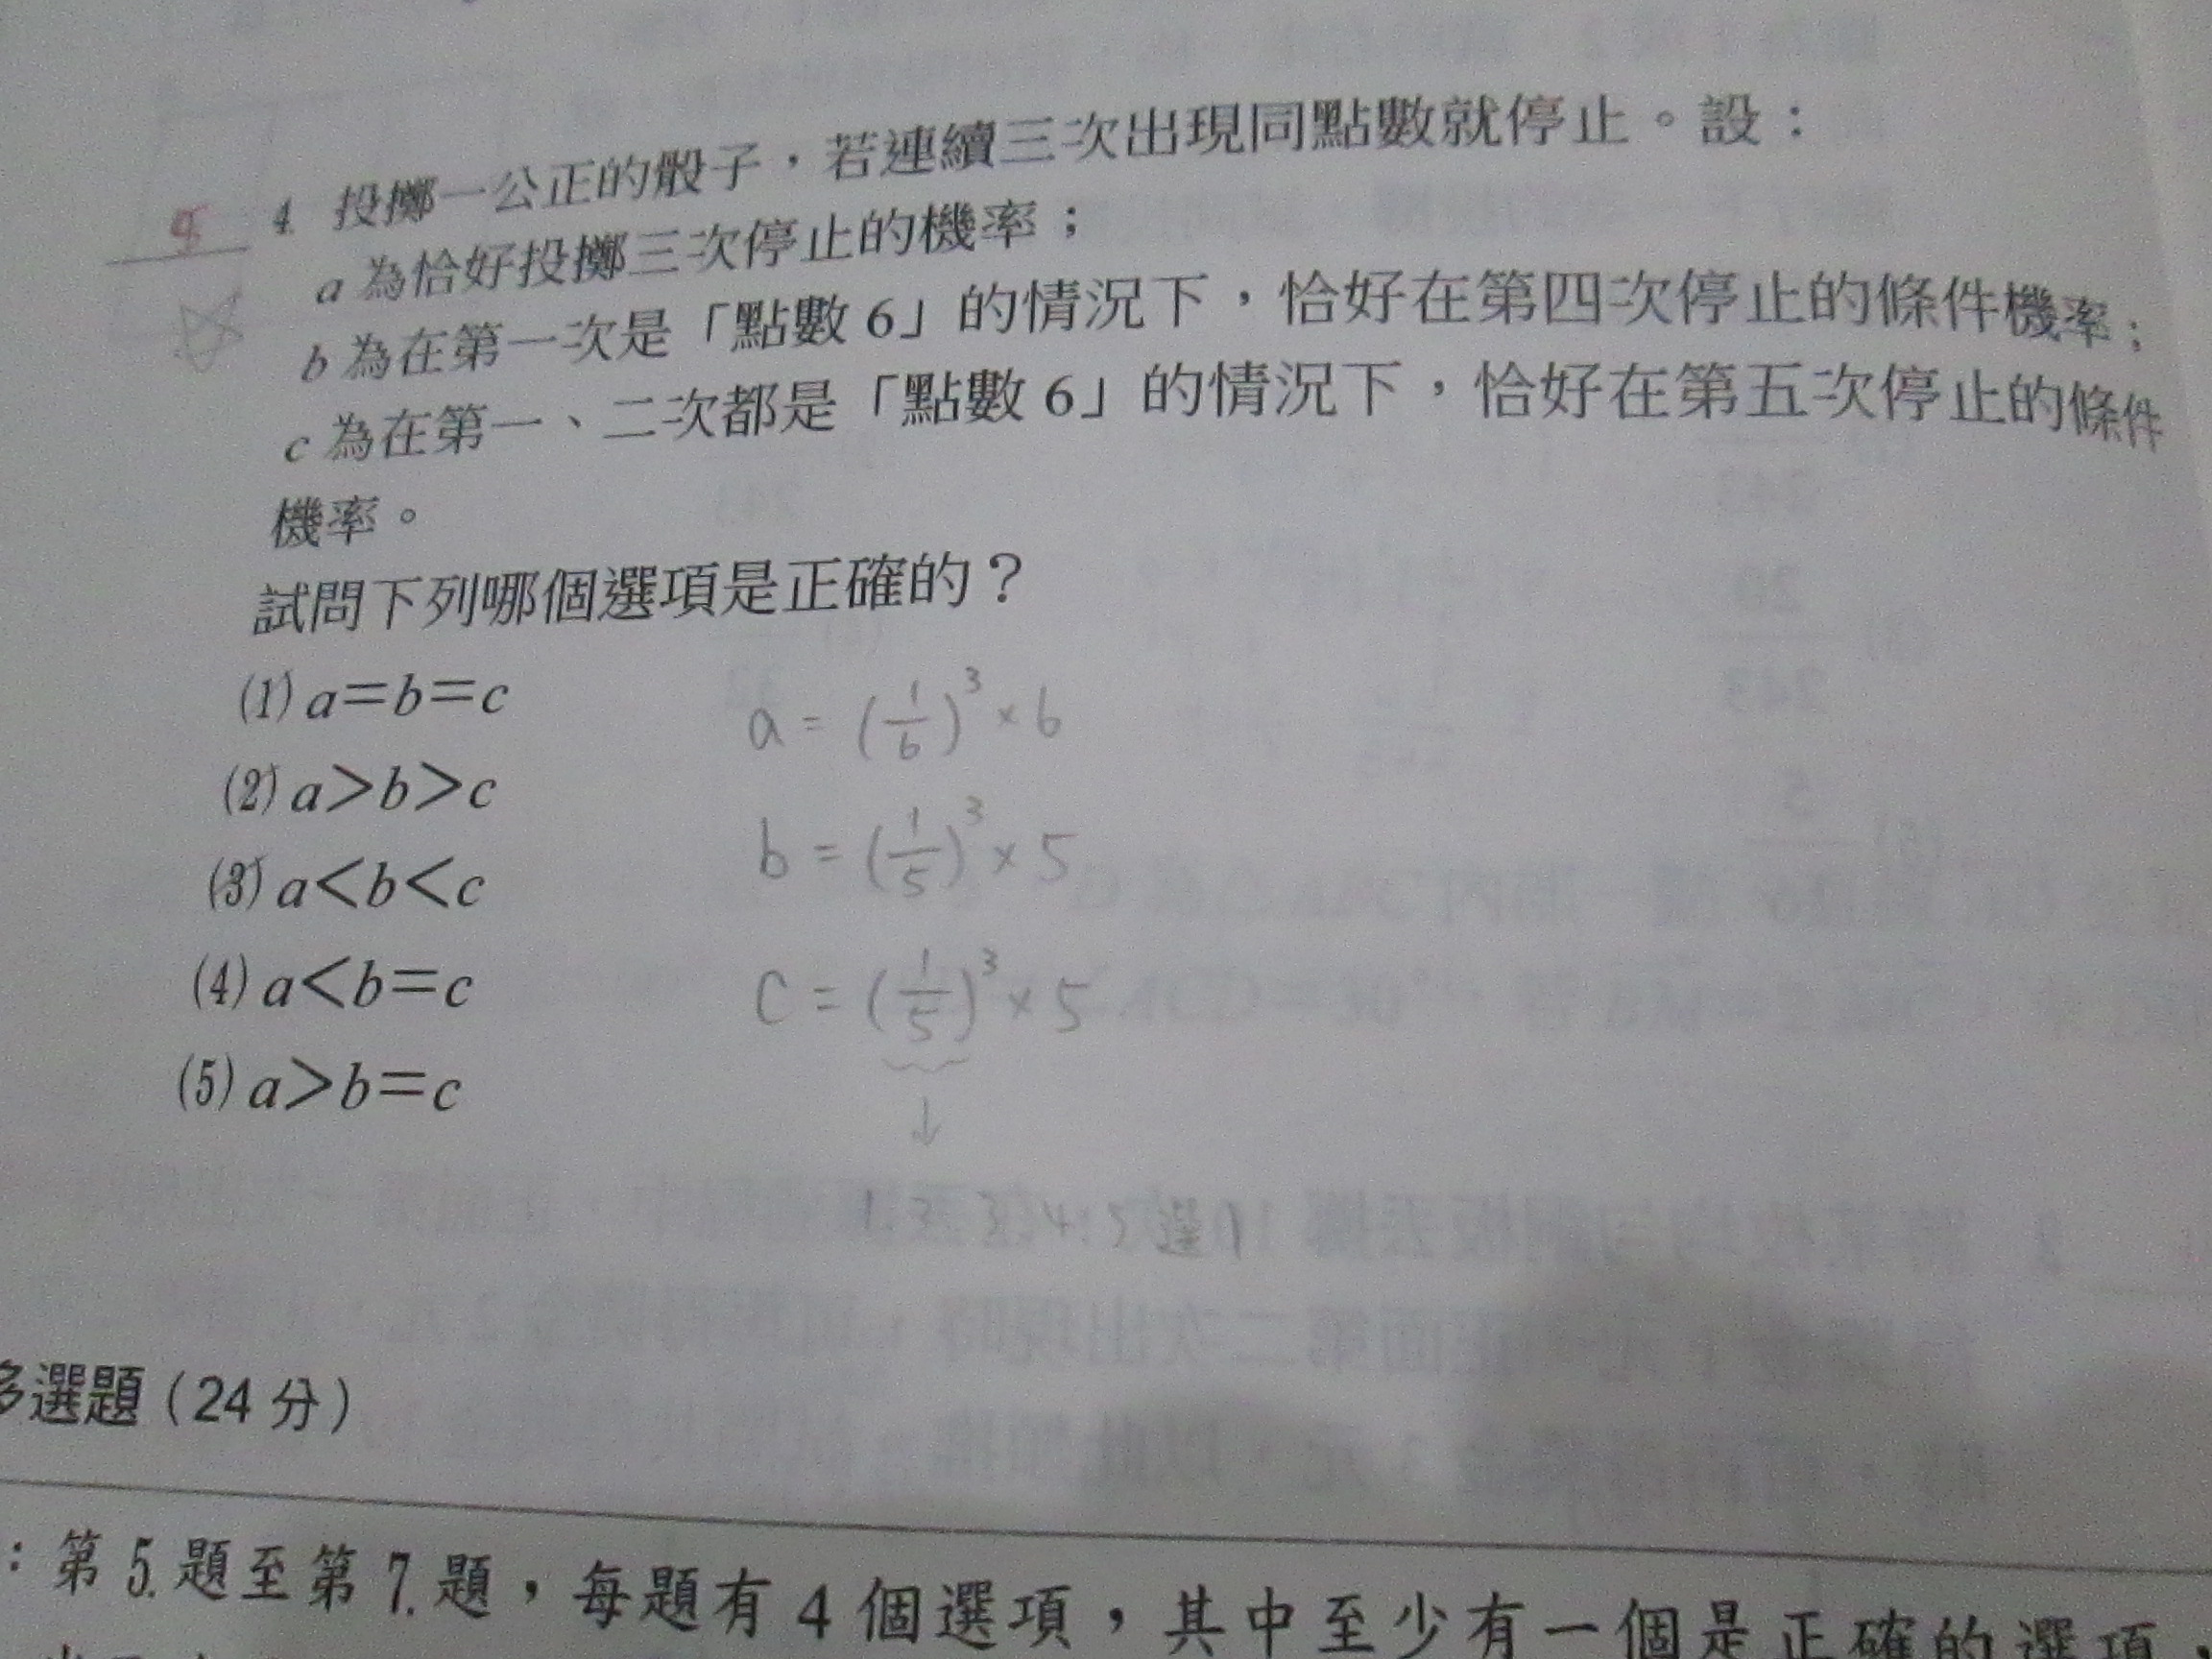 4. 投擲一公正的骰子，若連續三次出現同點數就停止。設：
a 為恰好投擲三次停止的機率；
b 為在第一次是「點數 6」的情況下，恰好在第四次停止的條件機率；
c 為在第一、二次都是「點數 6」的情況下，恰好在第五次停止的條件
機率。
試問下列哪個選項是正確的？
(1) a＝b＝c
(2) a＞b＞c
(3) a＜b＜c
(4) a＜b＝c
(5) a＞b＝c
a = (1/6)³ × 6
b = (1/5)³ × 5
C = (1/5)³ × 5
↓
1.2.3.4.5 選1
多選題（24 分）
：第 5. 題至第 7. 題，每題有 4 個選項，其中至少有一個是正確的選項，